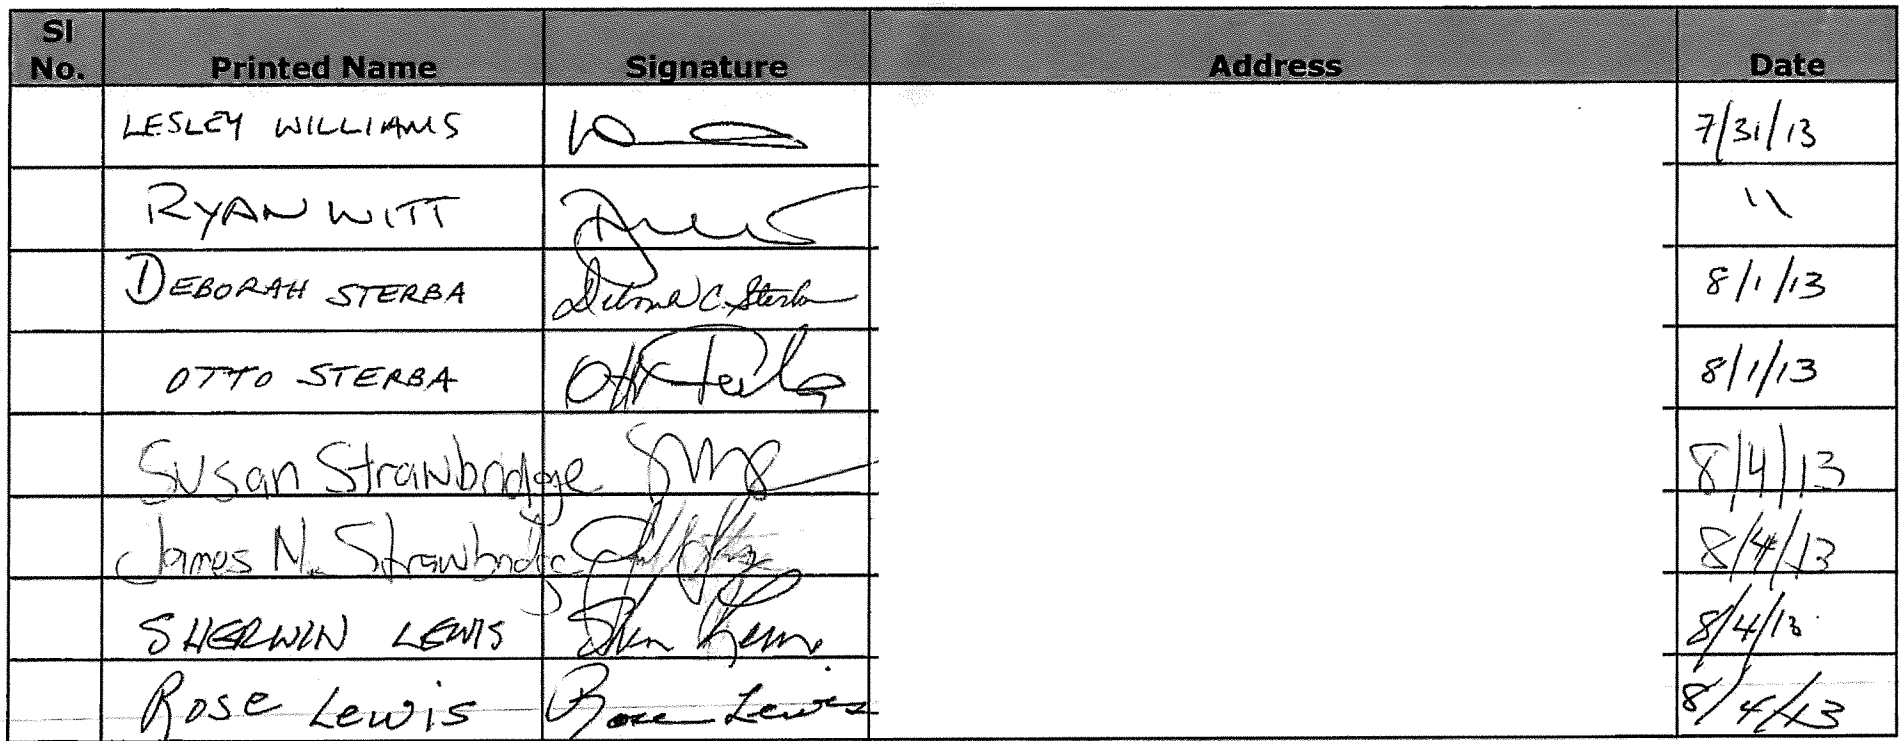 Sl No. Printed Name Signature Address Date
LESLEY WILLIAMS 7/31/13
RYAN WITT \\
DEBORAH STERBA Deborah C. Sterba 8/1/13
OTTO STERBA Otto Sterba 8/1/13
Susan Strawbridge 8/4/13
James N. Strawbridge 8/4/13
SHERWIN LEWIS 8/4/13
Rose Lewis Rose Lewis 8/4/13